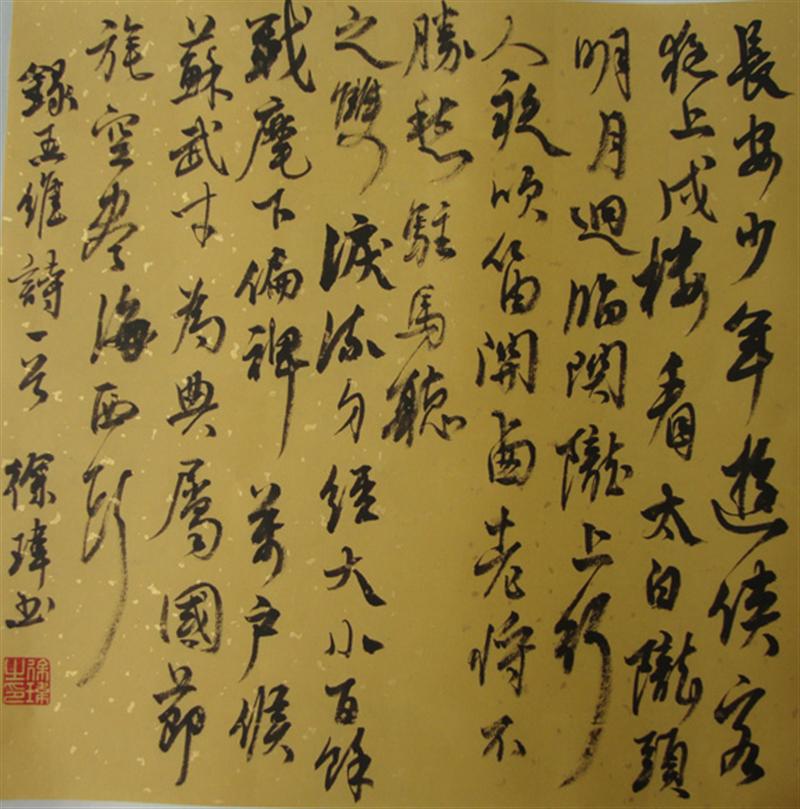 長安少年遊侠客
夜上戍楼看太白隴頭
明月迥臨関隴上行
人夜吹笛関西老将不
勝愁駐馬聽
之雙淚流身經大小百餘
戰麾下偏裨萬户侯
蘇武才為典屬國節
旄空盡海西頭
錄王維詩一首 徐瑋书
徐瑋之印